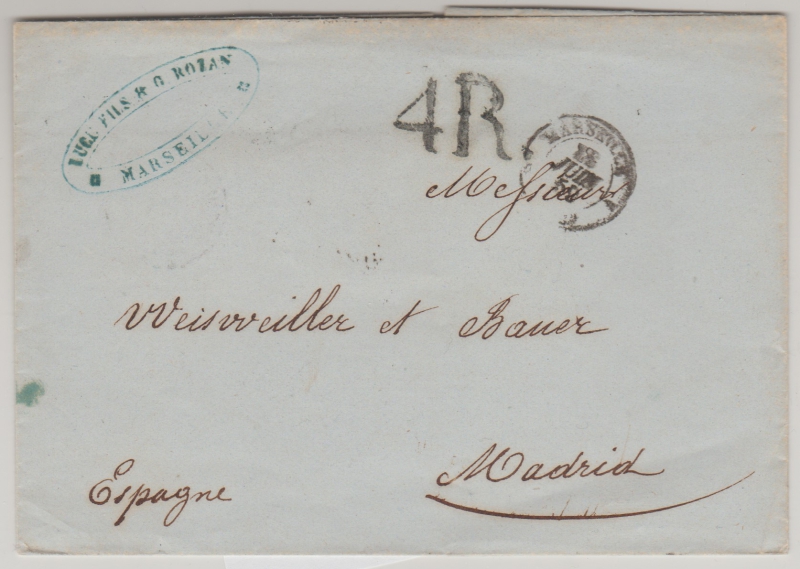 FILS & G. ROZAN
MARSEILLE
4R.
MARSEILLE
JUIN
Messieurs
Weisweiller et Bauer
Madrid
Espagne